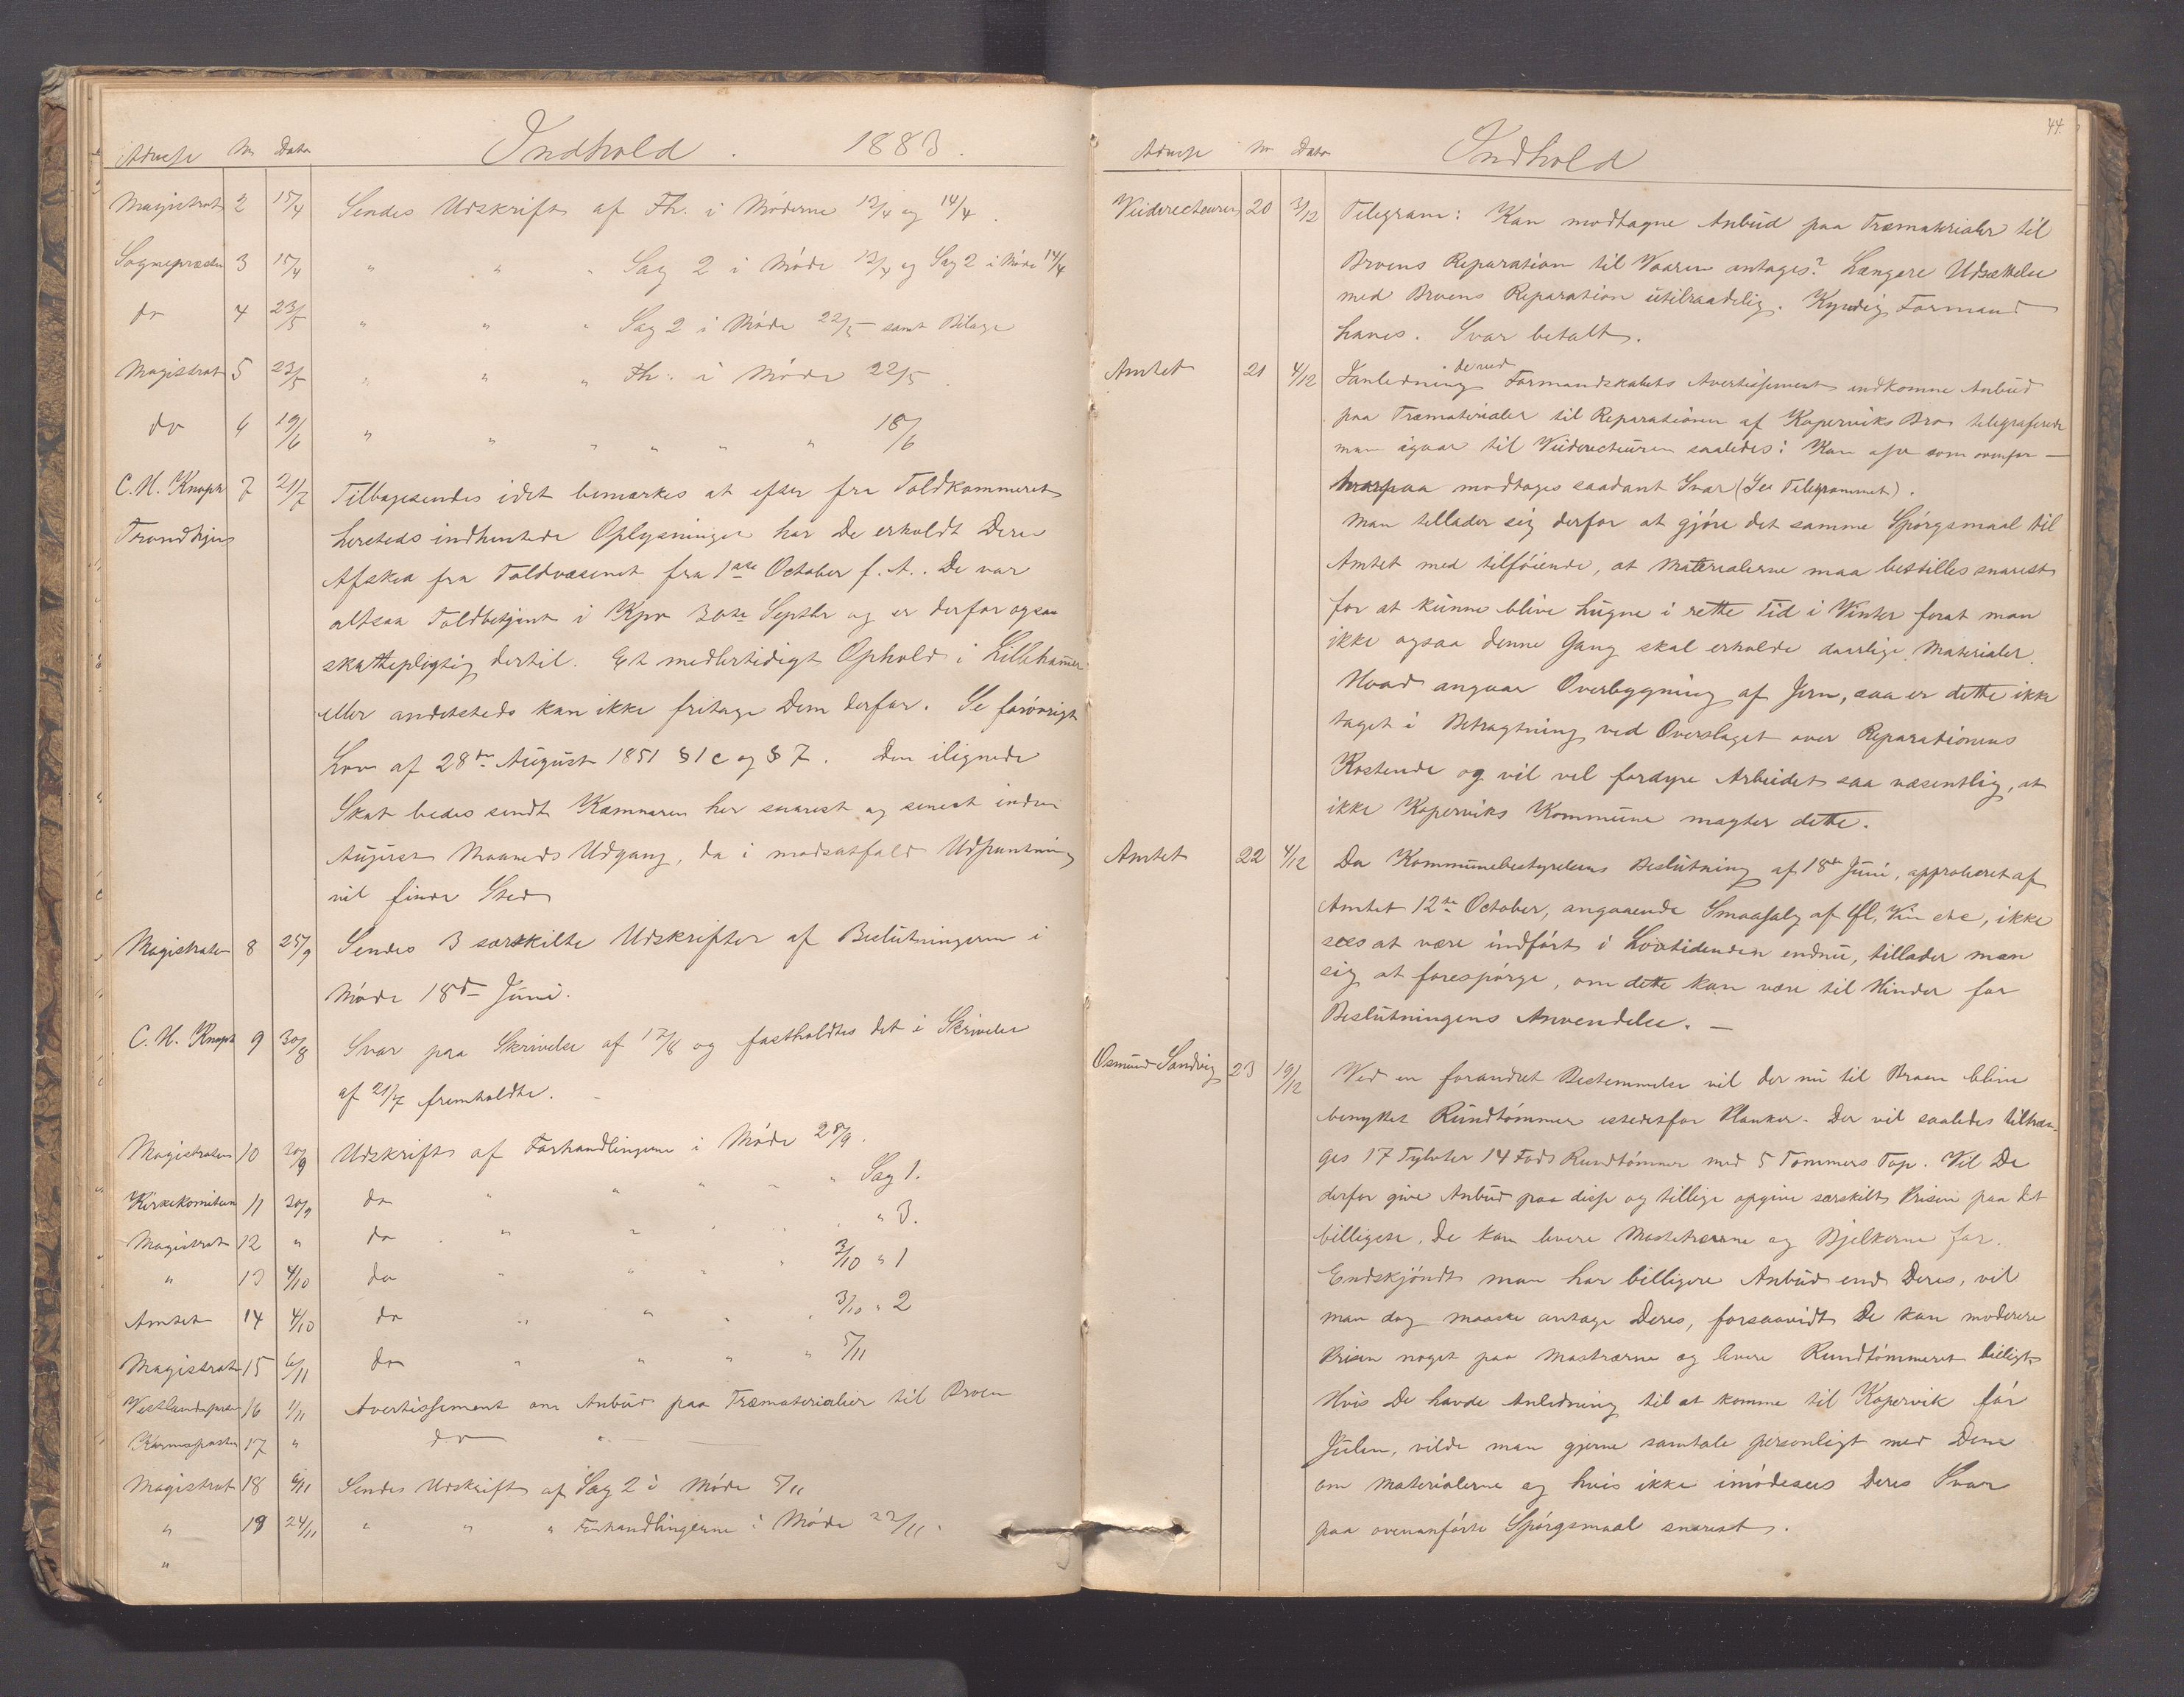 Adresse No Dato Indhold. 1883.
Magistrat 2 15/4 Sendes Udskrift af Fh. i Møderne 13/4 og 14/4.
Sognepresten 3 15/4 " " " Sag 2 i Møde 13/4 og Sag 2 i Møde 14/4
do 4 23/5 " " " Sag 2 i Møde 22/5 samt Bilage
Magistrat 5 23/5 " " " Fh. i Møde 22/5.
do 6 19/6 " " " " " " 18/6
C. H. Knoph 7 21/7 Tilbagesendes idet bemærkes at efter fra Toldkammeret
Trondhjem hersteds indhentede Oplysninger har De erholdt Deres
Afsked fra Toldvæsenet fra 1ste October f. A.. De var
altsaa Toldbetjent i Kpv 30te Septbr og er derfor ogsaa
skattepligtig dertil. Et midlertidigt Ophold i Lillehamer
eller andetsteds kan ikke fritage Dem derfor. Se forövrigt
Lov af 28de August 1851 § 1 c og § 7. Den ilignede
Skat bedes sendt Kæmneren her snarest og senest inden
August Maaneds Udgang, da i modsatfald Udpantning
vil finde Sted
Magistraten 8 25/9 Sendes 3 særskilte Udskrifter af Beslutningerne i
Møde 18de Juni.
C. H. Knoph 9 30/8 Svar paa Skrivelse af 17/8 og fastholdtes det i Skrivelse
af 21/7 fremholdte.
Magistraten 10 30/9 Udskrift af Forhandlingerne i Møde 28/9.
" Sag 1.
Kirkekomiteen 11 30/9 do " " " "
" 3.
Magistrat 12 " do " " " "
" 13 4/10 do " " " " 3/10 " 1
Amtet 14 4/10 do " " " " 3/10 " 2
Magistrat 15 6/11 do " " " " 5/11
Vestlandsposten 16 1/11 Avertissement om Anbud paa Træmaterialier til Broen
Karmsposten 17 " do "
Magistrat 18 6/11 Sendes Udskrift af Sag 2 i Møde 5/11
" 19 24/11 " " " Forhandlingerne i Møde 22/11.
"
44.
Adresse No Dato Indhold
Veidirecteuren 20 3/12 Telegram: Kan modtagne Anbud paa Træmaterialer til
Broens Reparation til Vaaren antages? Længere Udsættelse
med Broens Reparation utilraadelig. Kyndig Formand
haves. Svar betalt.
Amtet 21 4/12 I anledning de ved Formandskabets Avertissement indkomne Anbud
paa Træmaterialer til Reparationen af Koperviks Bro telegraferede
man igaar til Veidirecteuren saaledes: Kan osv som ovenfor —
hvorpaa modtoges saadant Svar (See Telegrammet).
Man tillader sig derfor at gjöre det samme Spörgsmaal til
Amtet med tilföiende, at Materialerne maa bestilles snarest
for at kunne blive hugne i rette Tid i Vinter forat man
ikke ogsaa denne Gang skal erholde daarlige Materialer.
Hvad angaar Overbygning af Jern, saa er dette ikke
taget i Betragtning ved Overslaget over Reparationens
Kostende og vil vel fordyre Arbeidet saa væsentlig, at
ikke Koperviks Kommune magter dette.
Amtet 22 4/12 Da Kommunebestyrelsens Beslutning af 18de Juni, approberet af
Amtet 12te October, angaaende Smaasalg af Øl, Vin etc, ikke
sees at være indfört i Lovtidenden endnu, tillader man
sig at forespörge, om dette kan være til Hinder for
Beslutningens Anvendelse. —
Osmund Sandvig 23 19/12 Ved en forandret Bestemmelse vil der nu til Broen blive
benyttet Rundtömmer istedetfor Planker. Der vil saaledes tiltræn-
ges 17 Tylvter 14 Fods Rundtömmer med 5 Tommers Top. Vil De
derfor give Anbud paa disse og tillige opgive særskilt Prisen paa det
billigste, De kan levere Mastetræerne og Bjelkerne for.
Endskjöndt man har billigere Anbud end Deres, vil
man dog maaske antage Deres, forsaavidt De kan moderere
Prisen noget paa Mastrærne og levere Rundtömmeret billigt
Hvis De havde Anledning til at komme til Kopervik för
Julen, vilde man gjerne samtale personligt med Dem
om Materialerne og hvis ikke imödesees Deres Svar
paa ovenanförte Spörgsmaal snarest.